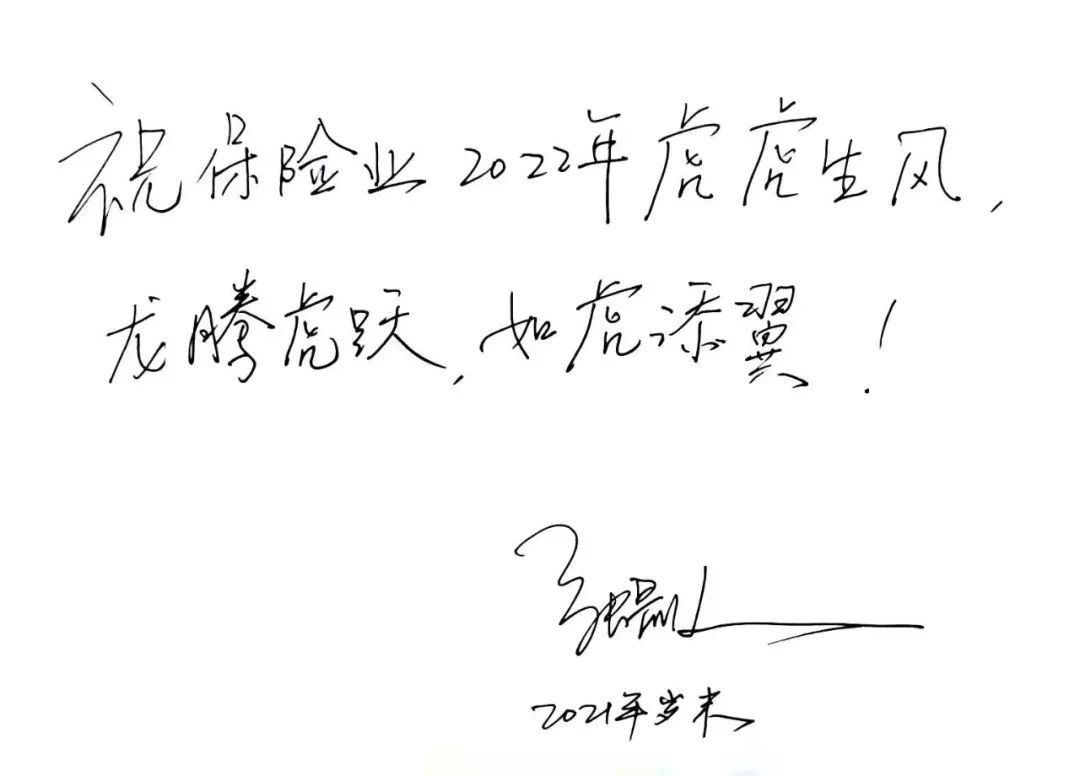 祝保险业2022年虎虎生风，
龙腾虎跃，如虎添翼！
2021年岁末